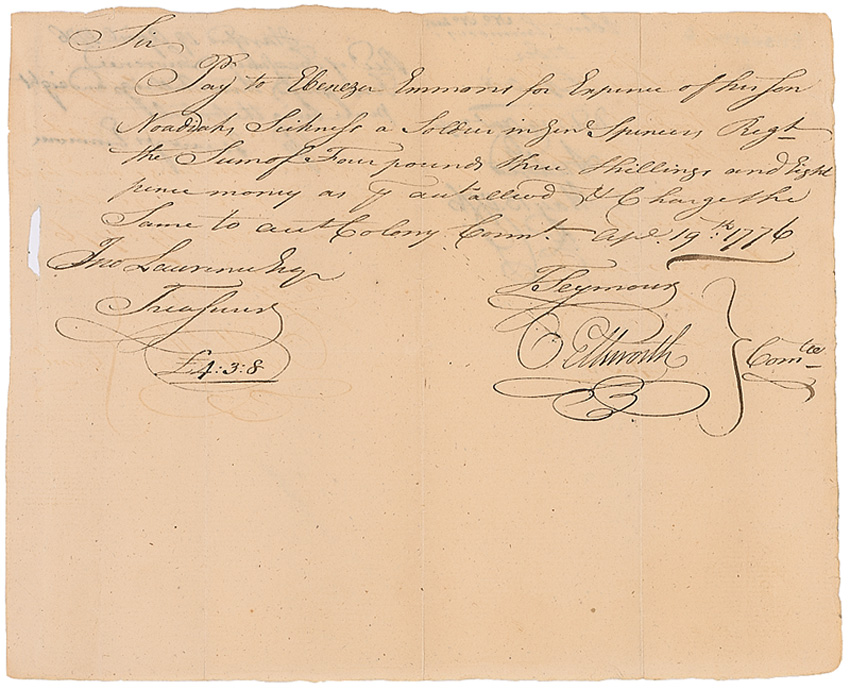 Sir
Pay to Ebenezer Emmons for Expence of his son
Noadiahs Sickness a Soldier in Genl Spencers Regt
the Sum of Four pounds three Shillings and Eight
pence money as
Charge the
Same to Colony Apl. 19th. 1776
Jno Lawrence Esqr
Treasurer
£4:3:8
T Seymour
O Ellsworth
Comtee